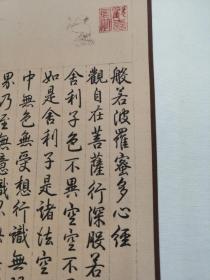 般若波羅蜜多心經
觀自在菩薩行深般若
舍利子色不異空空不
如是舍利子是諸法空
中無色無受想行識無
界乃至無意識